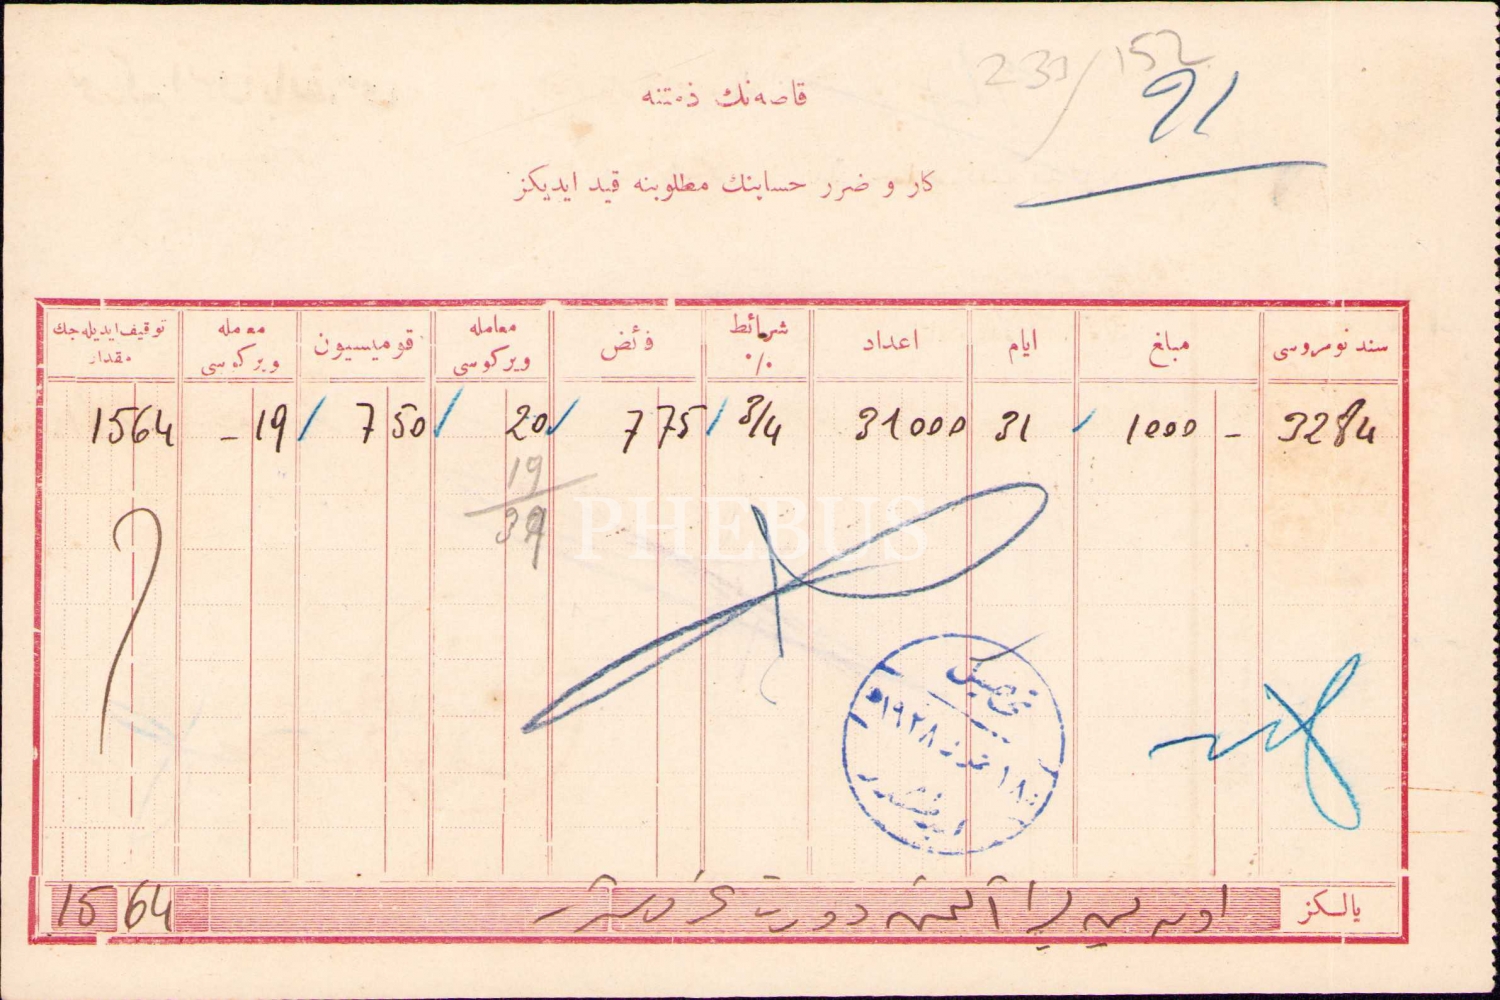 231/152
91
قاصه نك ذمتنه
كار و ضرر حسابنك مطلوبنه قيد ايديكز
سند نومروسى مبالغ ايام اعداد شرائط ٪ فائض معامله ويركوسى قوميسيون معامله ويركوسى توقيف ايديله جك مقدار
3284 1000 – 31 31000 3/4 775 20 750 19 – 1564
19
39
PHEBUS
تحصيل
١٨ تموز ١٩٢٨
يالكز اون بش ليرا آلتمش دورت غروشدر 15 64